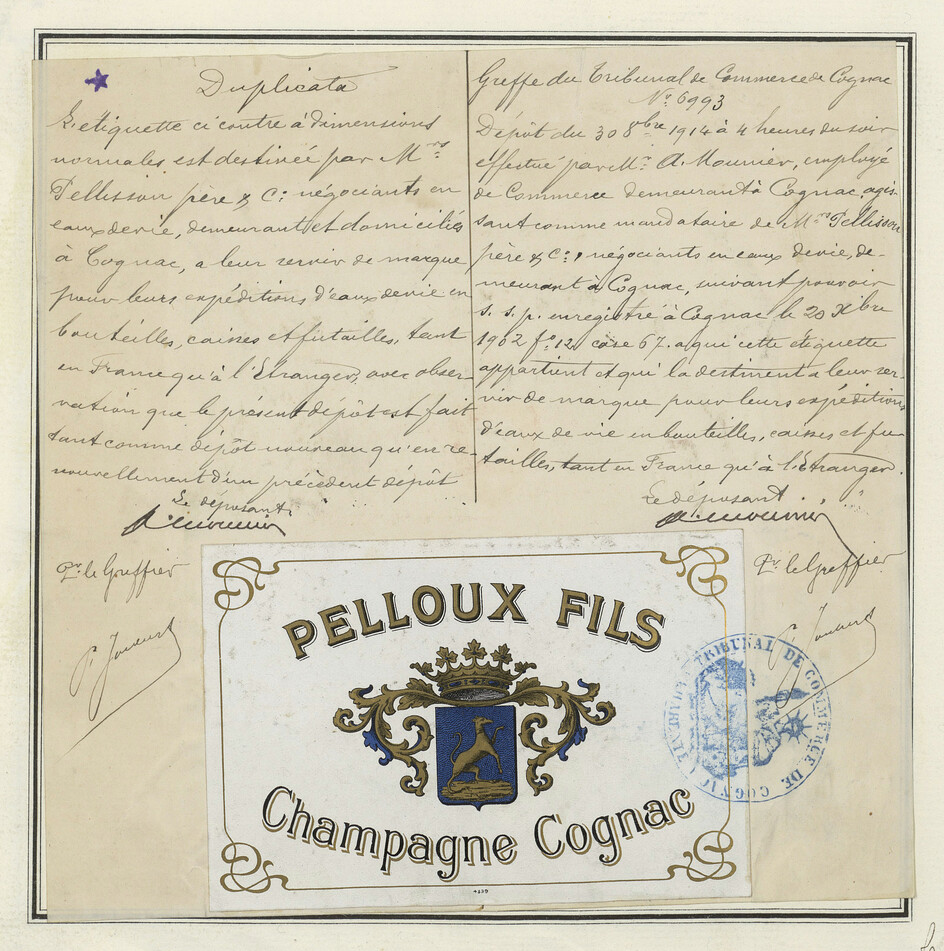 Duplicata
L'etiquette ci contre à dimensions
normales est destinée par M.rs
Pellisson père & C.ie négociants en
eaux de vie, demeurant et domiciliés
à Cognac, a leur servir de marque
pour leurs expéditions d'eaux de vie en
bouteilles, caisses et futailles, tant
en France qu'à l'Etranger, avec obser-
vation que le présent dépôt est fait
tant comme dépôt nouveau qu'en re-
nouvellement d'un précédent dépôt
Le déposant,
A. Mounier
Pr. le Greffier
Greffe du Tribunal de Commerce de Cognac
No. 6993
Dépôt du 30 8bre 1914 à 4 heures du soir
effectué par Mr. A. Mounier, employé
de Commerce demeurant à Cognac, agis-
sant comme mandataire de M.rs Pellisson
père & C.ie, négociants en eaux de vie, de-
meurant à Cognac, suivant pouvoir
s. s. p. enregistré à Cognac le 20 Xbre
1902 fo. 12. case 67. a qui cette étiquette
appartient et qui la destinent a leur ser-
vir de marque pour leurs expéditions
d'eaux de vie en bouteilles, caisses et fu-
tailles, tant en France qu'à l'Etranger.
Le déposant.
A. Mounier
Pr. le Greffier
PELLOUX FILS
Champagne Cognac
TRIBUNAL DE COMMERCE DE COGNAC